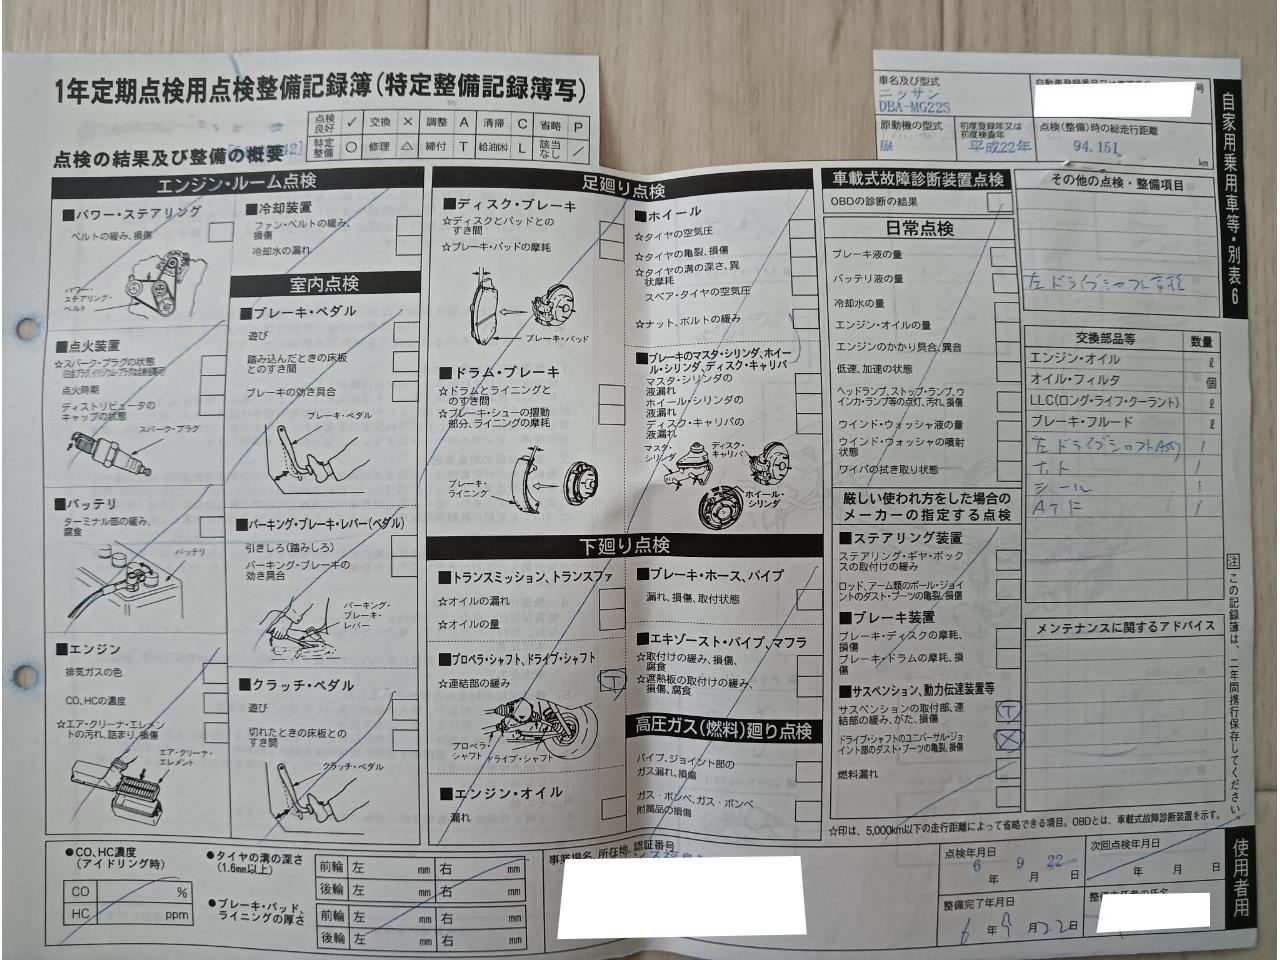 1年定期点検用点検整備記録簿(特定整備記録簿写)
点検良好 ✓ 交換 × 調整 A 清掃 C 省略 P
特定整備 ○ 修理 △ 締付 T 給油(水) L 該当なし ／
点検の結果及び整備の概要
車名及び型式
ニッサン
DBA-MG22S
原動機の型式
初度登録年又は初度検査年
平成22年
点検(整備)時の総走行距離
94.151
km
自家用乗用車等・別表6
エンジン・ルーム点検
■パワー・ステアリング
ベルトの緩み、損傷
パワー・ステアリング・ベルト
■点火装置
☆スパーク・プラグの状態
点火時期
ディストリビュータのキャップの状態
スパーク・プラグ
■バッテリ
ターミナル部の緩み、腐食
バッテリ
■エンジン
排気ガスの色
CO、HCの濃度
☆エア・クリーナ・エレメントの汚れ、詰まり、損傷
エア・クリーナ・エレメント
■冷却装置
ファン・ベルトの緩み、損傷
冷却水の漏れ
室内点検
■ブレーキ・ペダル
遊び
踏み込んだときの床板とのすき間
ブレーキの効き具合
ブレーキ・ペダル
■パーキング・ブレーキ・レバー(ペダル)
引きしろ(踏みしろ)
パーキング・ブレーキの効き具合
パーキング・ブレーキ・レバー
■クラッチ・ペダル
遊び
切れたときの床板とのすき間
クラッチ・ペダル
足廻り点検
■ディスク・ブレーキ
☆ディスクとパッドとのすき間
☆ブレーキ・パッドの摩耗
ブレーキ・パッド
■ドラム・ブレーキ
☆ドラムとライニングとのすき間
☆ブレーキ・シューの摺動部分、ライニングの摩耗
ブレーキ・ライニング
■ホイール
☆タイヤの空気圧
☆タイヤの亀裂、損傷
☆タイヤの溝の深さ、異状摩耗
スペア・タイヤの空気圧
☆ナット、ボルトの緩み
■ブレーキのマスタ・シリンダ、ホイール・シリンダ、ディスク・キャリパ
マスタ・シリンダの液漏れ
ホイール・シリンダの液漏れ
ディスク・キャリパの液漏れ
マスタ・シリンダ
ディスク・キャリパ
ホイール・シリンダ
下廻り点検
■トランスミッション、トランスファ
☆オイルの漏れ
☆オイルの量
■プロペラ・シャフト、ドライブ・シャフト
☆連結部の緩み
T
プロペラ・シャフト
ドライブ・シャフト
■エンジン・オイル
漏れ
■ブレーキ・ホース、パイプ
漏れ、損傷、取付状態
■エキゾースト・パイプ、マフラ
☆取付けの緩み、損傷、腐食
☆遮熱板の取付けの緩み、損傷、腐食
高圧ガス(燃料)廻り点検
パイプ、ジョイント部のガス漏れ、損傷
ガス・ボンベ、ガス・ボンベ附属品の損傷
車載式故障診断装置点検
OBDの診断の結果
日常点検
ブレーキ液の量
バッテリ液の量
冷却水の量
エンジン・オイルの量
エンジンのかかり具合、異音
低速、加速の状態
ヘッドランプ、ストップ・ランプ、ウインカ・ランプ等の点灯、汚れ、損傷
ウインド・ウォッシャ液の量
ウインド・ウォッシャの噴射状態
ワイパの拭き取り状態
厳しい使われ方をした場合のメーカーの指定する点検
■ステアリング装置
ステアリング・ギヤ・ボックスの取付けの緩み
ロッド、アーム類のボール・ジョイントのダスト・ブーツの亀裂、損傷
■ブレーキ装置
ブレーキ・ディスクの摩耗、損傷
ブレーキ・ドラムの摩耗、損傷
■サスペンション、動力伝達装置等
サスペンションの取付部、連結部の緩み、がた、損傷
T
ドライブ・シャフトのユニバーサル・ジョイント部のダスト・ブーツの亀裂、損傷
×
燃料漏れ
その他の点検・整備項目
左ドライブシャフト交換
交換部品等 数量
エンジン・オイル ℓ
オイル・フィルタ 個
LLC(ロング・ライフ・クーラント) ℓ
ブレーキ・フルード ℓ
左ドライブシャフトASSY 1
ナット 1
シール 1
1
メンテナンスに関するアドバイス
注 この記録簿は、二年間携行保存してください。
☆印は、5,000km以下の走行距離によって省略できる項目。OBDとは、車載式故障診断装置を示す。
●CO、HC濃度(アイドリング時)
CO %
HC ppm
●タイヤの溝の深さ(1.6mm以上)
前輪 左 mm 右 mm
後輪 左 mm 右 mm
●ブレーキ・パッド、ライニングの厚さ
前輪 左 mm 右 mm
後輪 左 mm 右 mm
事業場名、所在地、認証番号
点検年月日
6年 9月 22日
次回点検年月日
年 月 日
整備完了年月日
6年9月22日
使用者用